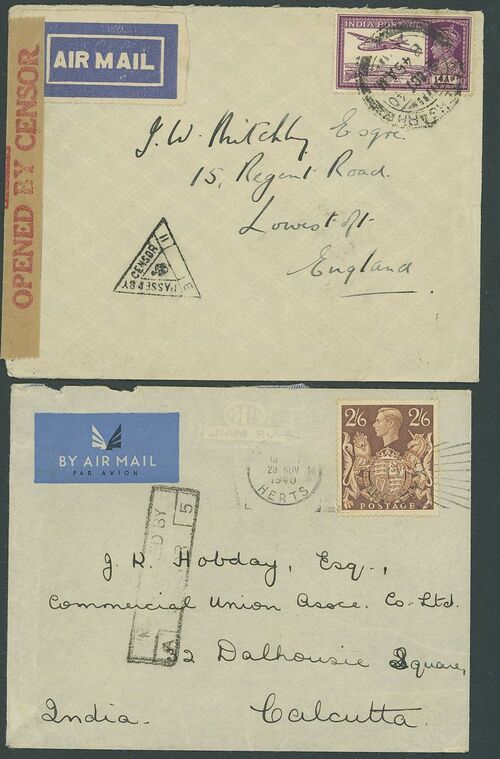 AIR MAIL
OPENED BY CENSOR
INDIA POSTAGE
J. W. Mitchley Esqre.
15, Regent Road.
Lowestoft
England
PASSED BY
CENSOR
BY AIR MAIL
PAR AVION
23 NOV
1940
HERTS
2/6 2/6
POSTAGE
5
A
J. R. Hobday, Esq.,
Commercial Union Assce. Co. Ltd.
2 Dalhousie Square,
India. Calcutta.